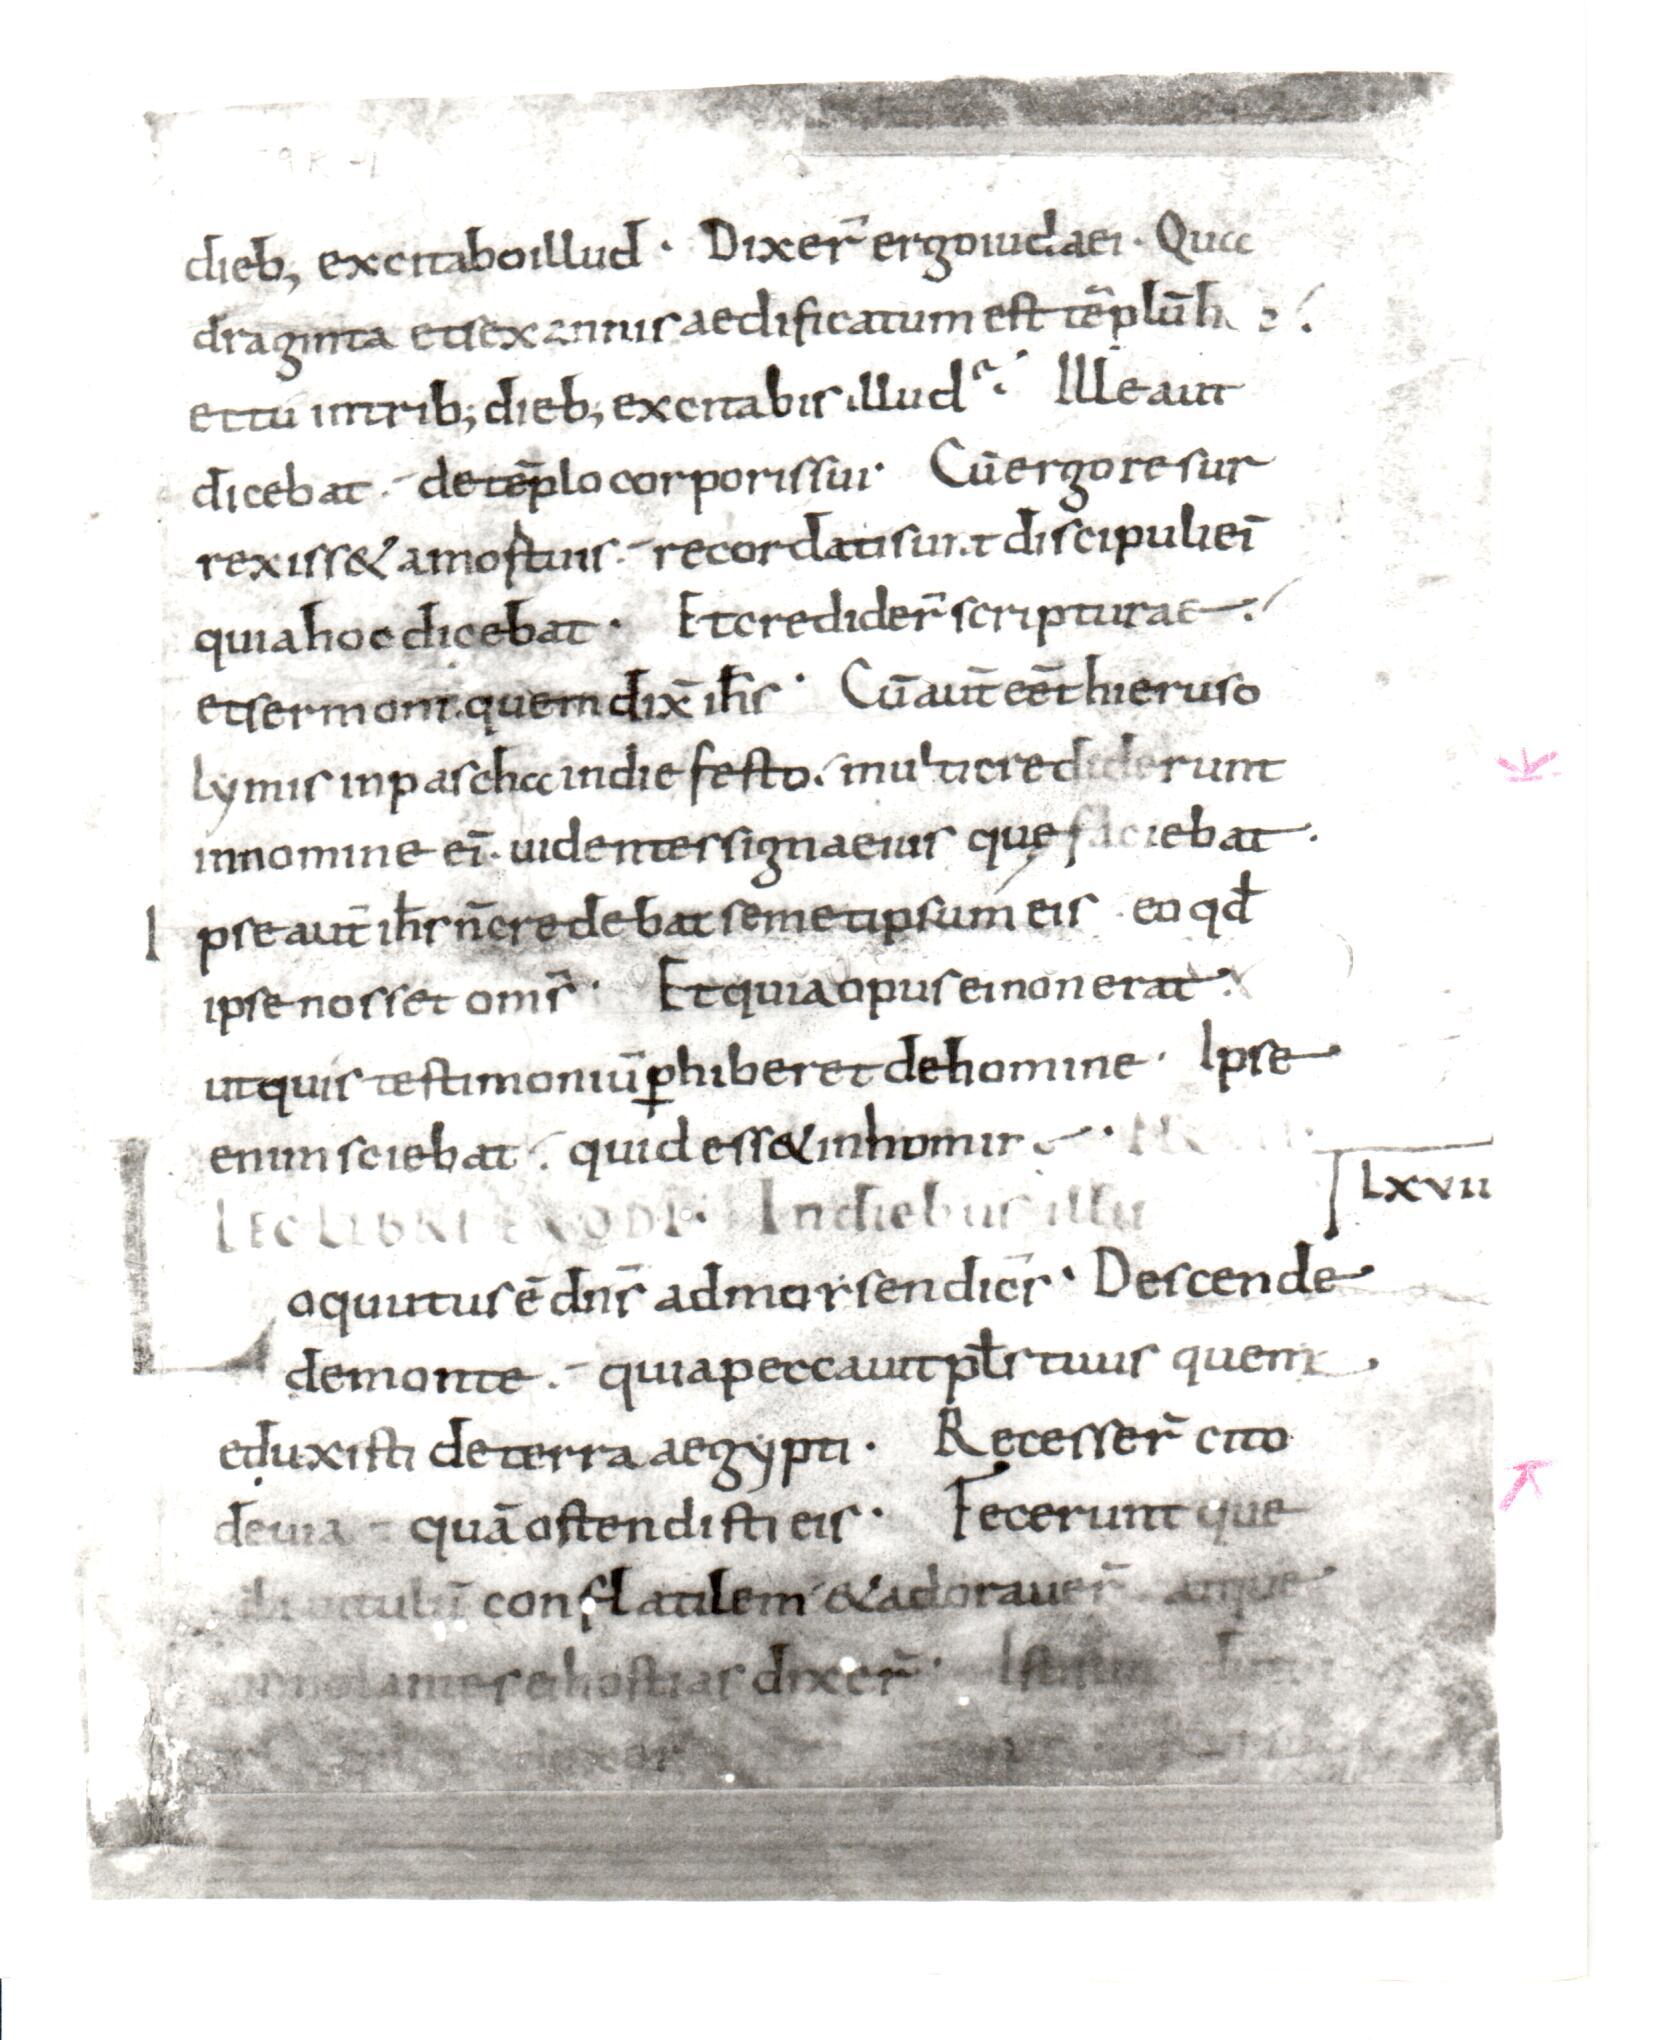 dieb; excitabo illud · Dixer̄ ergo iudaei · Qua
draginta et sex annis aedificatum est tēplū h
et tu in trib; dieb; excitabis illud · Ille aut
dicebat · de tēplo corporis sui · Cū ergo resur
rexiss& a mortuis · recordati sunt discipuli eī
quia hoc dicebat · Et credider̄ scripturae ·
et sermoni quem dix̄ ih̄s · Cū aut̄ eēt hieruso
lymis in pascha in die festo · multi crediderunt
in nomine eī · uidentes signa eius quę faciebat ·
Ipse aut̄ ih̄s n̄ credebat semetipsum eis · eo qd̄
ipse nosset om̄s · Et quia opus ei non erat ·
ut quis testimoniū ꝑhiberet de homine · Ipse
enim sciebat · quid ess& in homine ·
LEC LIBRI EXODI · In diebus illis
LXVII
Loquutus ē dn̄s ad moysen dicēs · Descende
de monte · quia peccauit pl̄s tuus quem
eduxisti de terra aegypti · Recesser̄ cito
de uia · quā ostendisti eis · Fecerunt que
sibi uitulū conflatilem & adorauer̄ · atque
immolantes ei hostias dixer̄ · Isti sunt dii